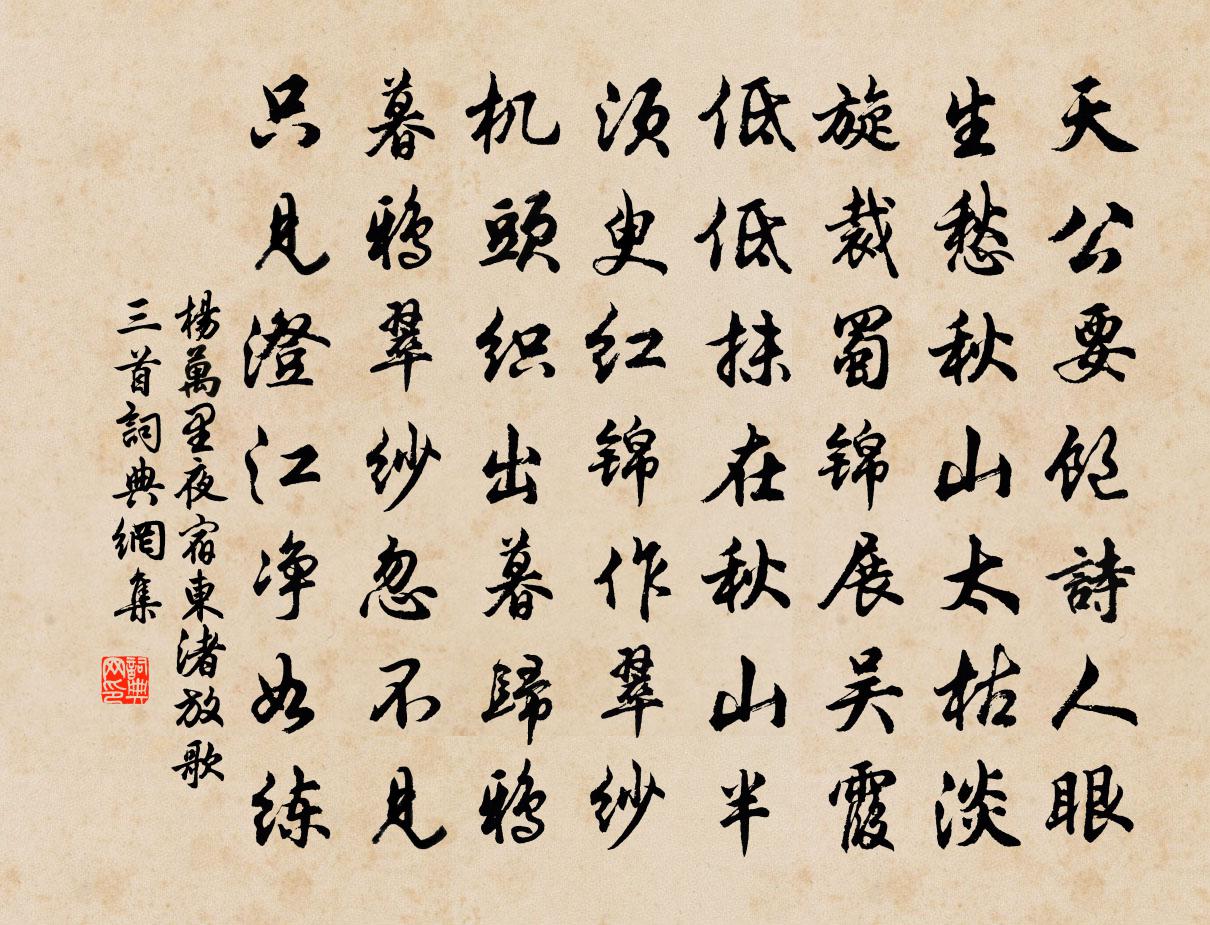 天公要饱詩人眼
生愁秋山太枯淡
旋裁蜀锦展吴霞
低低抹在秋山半
须臾红锦作翠纱
机頭织出暮歸鸦
暮鸦翠纱忽不見
只見澄江净如练
楊萬里夜宿東渚放歌
三首詞典網集
詞典网印